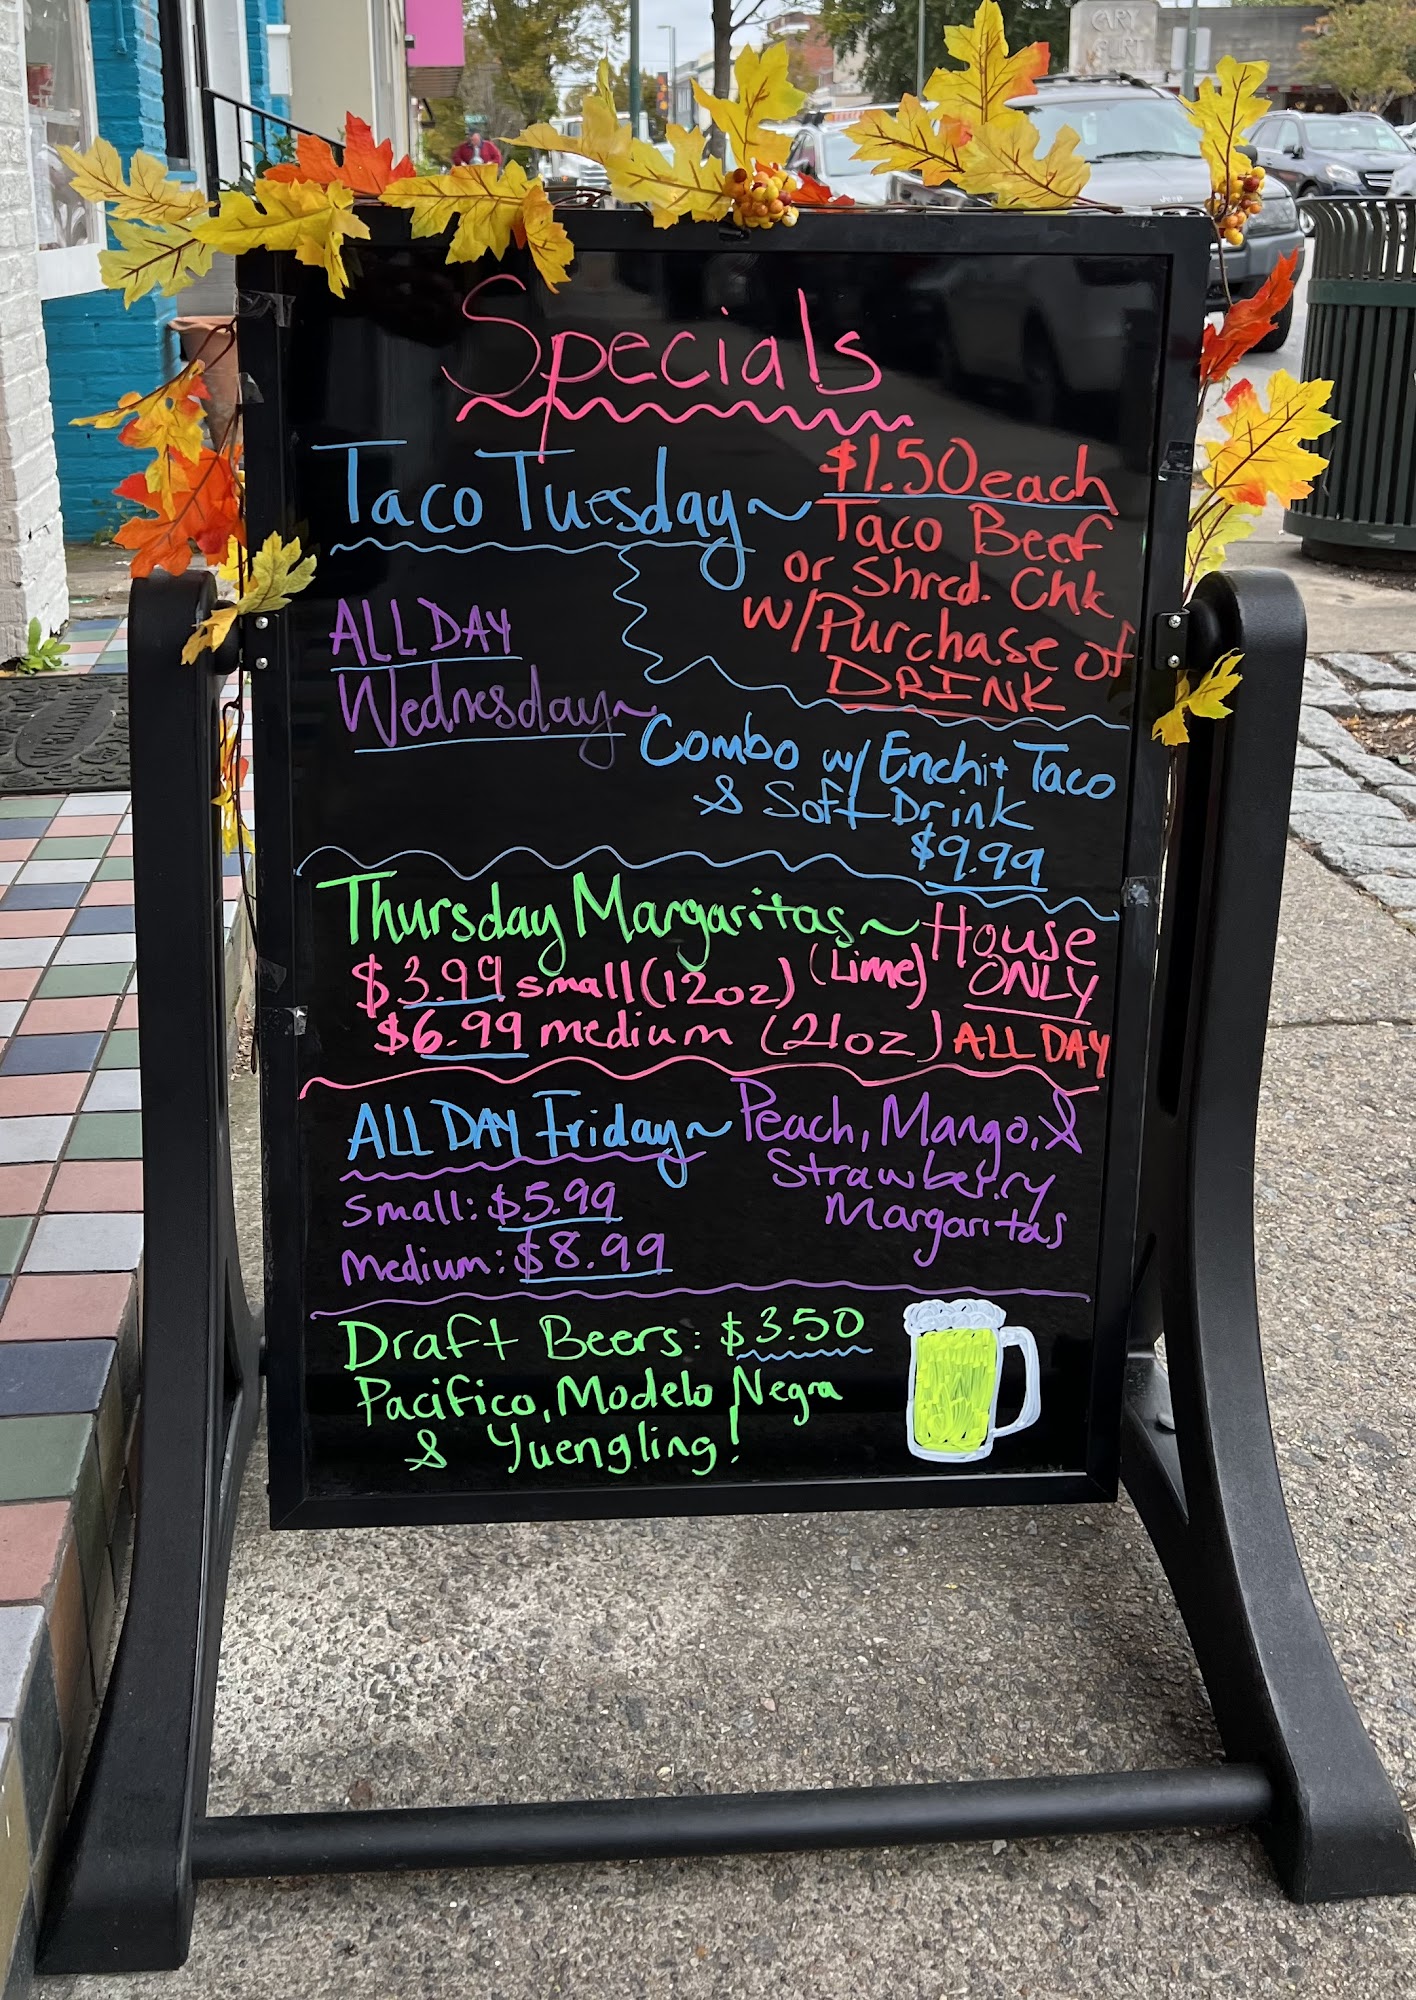 CARY
COURT
Specials
Taco Tuesday~
$1.50 each
Taco Beef
or Shred. Chk
w/Purchase of
DRINK
ALL DAY
Wednesday~
Combo w/ Ench + Taco
& Soft Drink
$9.99
Thursday Margaritas~ House
$3.99 small (12oz) (Lime) ONLY
$6.99 medium (21oz) ALL DAY
ALL DAY Friday~ Peach, Mango, &
Strawberry
Margaritas
Small: $5.99
Medium: $8.99
Draft Beers: $3.50
Pacifico, Modelo Negra
& Yuengling!